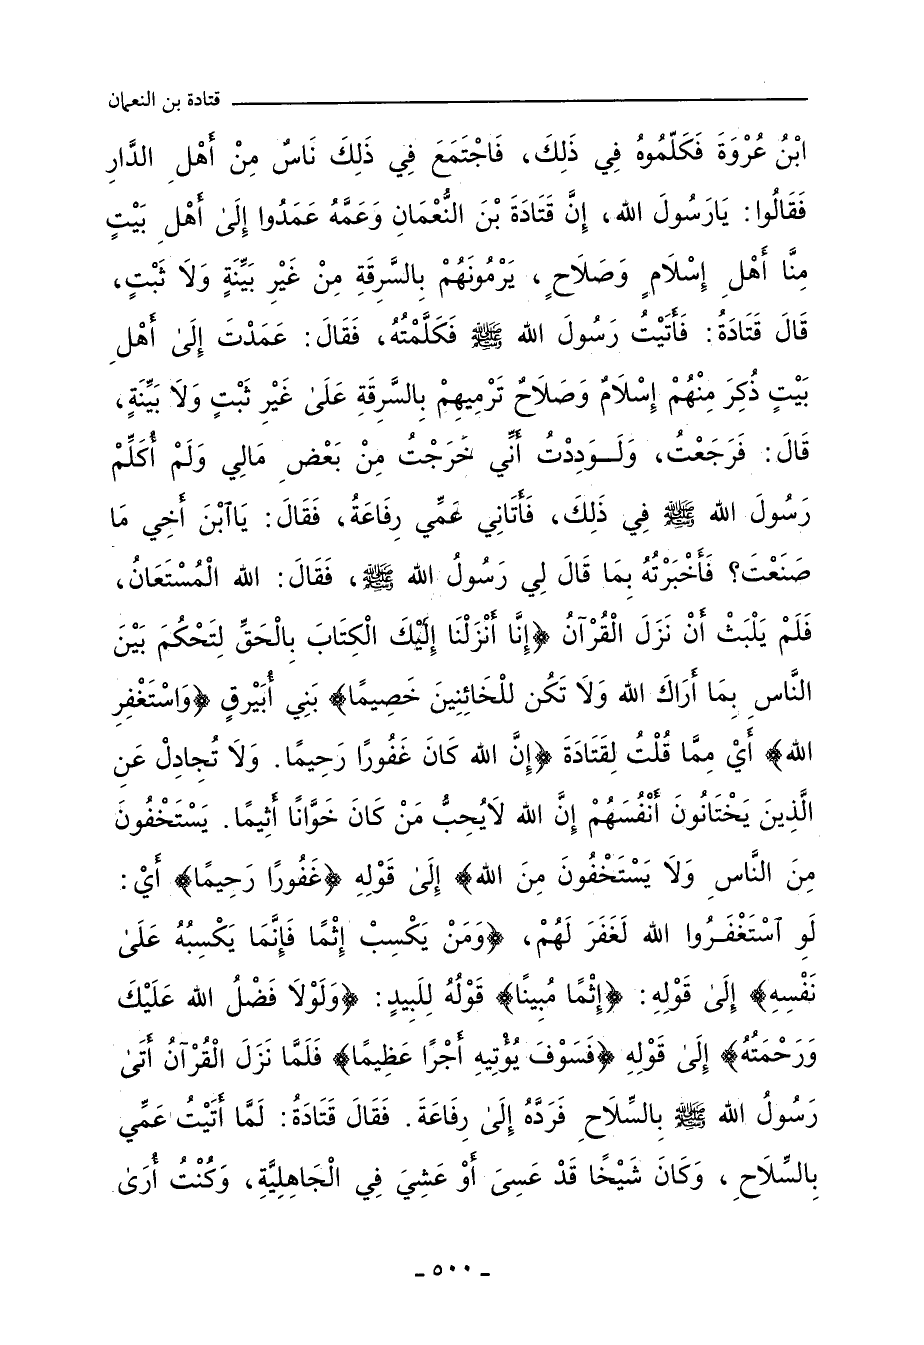 قتادة بن النعمان
ابْنُ عُرْوَةَ فَكَلَّمُوهُ فِي ذَلِكَ، فَاجْتَمَعَ فِي ذَلِكَ نَاسٌ مِنْ أَهْلِ الدَّارِ
فَقَالُوا: يَارَسُولَ الله، إِنَّ قَتَادَةَ بْنَ النُّعْمَانِ وَعَمَّهُ عَمَدُوا إِلَىٰ أَهْلِ بَيْتٍ
مِنَّا أَهْلِ إِسْلَامٍ وَصَلَاحٍ، يَرْمُونَهُمْ بِالسَّرِقَةِ مِنْ غَيْرِ بَيِّنَةٍ وَلَا ثَبْتٍ،
قَالَ قَتَادَةُ: فَأَتَيْتُ رَسُولَ الله ﷺ فَكَلَّمْتُهُ، فَقَالَ: عَمَدْتَ إِلَىٰ أَهْلِ
بَيْتٍ ذُكِرَ مِنْهُمْ إِسْلَامٌ وَصَلَاحٌ تَرْمِيهِمْ بِالسَّرِقَةِ عَلَىٰ غَيْرِ ثَبْتٍ وَلَا بَيِّنَةٍ،
قَالَ: فَرَجَعْتُ، وَلَـوَدِدْتُ أَنِّي خَرَجْتُ مِنْ بَعْضِ مَالِي وَلَمْ أُكَلِّمْ
رَسُولَ الله ﷺ فِي ذَلِكَ، فَأَتَانِي عَمِّي رِفَاعَةُ، فَقَالَ: يَاآبْنَ أَخِي مَا
صَنَعْتَ؟ فَأَخْبَرْتُهُ بِمَا قَالَ لِي رَسُولُ الله ﷺ، فَقَالَ: الله الْمُسْتَعَانُ،
فَلَمْ يَلْبَثْ أَنْ نَزَلَ الْقُرْآنُ ﴿إِنَّا أَنْزَلْنَا إِلَيْكَ الْكِتَابَ بِالْحَقِّ لِتَحْكُمَ بَيْنَ
النَّاسِ بِمَا أَرَاكَ الله وَلَا تَكُن لِلْخَائِنِينَ خَصِيمًا﴾ بَنِي أُبَيْرِقٍ ﴿وَاسْتَغْفِرِ
الله﴾ أَيْ مِمَّا قُلْتُ لِقَتَادَةَ ﴿إِنَّ الله كَانَ غَفُورًا رَحِيمًا. وَلَا تُجَادِلْ عَنِ
الَّذِينَ يَخْتَانُونَ أَنْفُسَهُمْ إِنَّ الله لَايُحِبُّ مَنْ كَانَ خَوَّانًا أَثِيمًا. يَسْتَخْفُونَ
مِنَ النَّاسِ وَلَا يَسْتَخْفُونَ مِنَ الله﴾ إِلَىٰ قَوْلِهِ ﴿غَفُورًا رَحِيمًا﴾ أَيْ:
لَوِ آسْتَغْفَـرُوا الله لَغَفَرَ لَهُمْ، ﴿وَمَنْ يَكْسِبْ إِثْمًا فَإِنَّمَا يَكْسِبُهُ عَلَىٰ
نَفْسِهِ﴾ إِلَىٰ قَوْلِهِ: ﴿إِثْمًا مُبِينًا﴾ قَوْلُهُ لِلَبِيدٍ: ﴿وَلَوْلَا فَضْلُ الله عَلَيْكَ
وَرَحْمَتُهُ﴾ إِلَىٰ قَوْلِهِ ﴿فَسَوْفَ يُؤْتِيهِ أَجْرًا عَظِيمًا﴾ فَلَمَّا نَزَلَ الْقُرْآنُ أَتَىٰ
رَسُولُ الله ﷺ بِالسِّلَاحِ فَرَدَّهُ إِلَىٰ رِفَاعَةَ. فَقَالَ قَتَادَةُ: لَمَّا أَتَيْتُ عَمِّي
بِالسِّلَاحِ، وَكَانَ شَيْخًا قَدْ عَسِيَ أَوْ عَشِيَ فِي الْجَاهِلِيَّةِ، وَكُنْتُ أُرَىٰ
ـ ٥٠٠ ـ